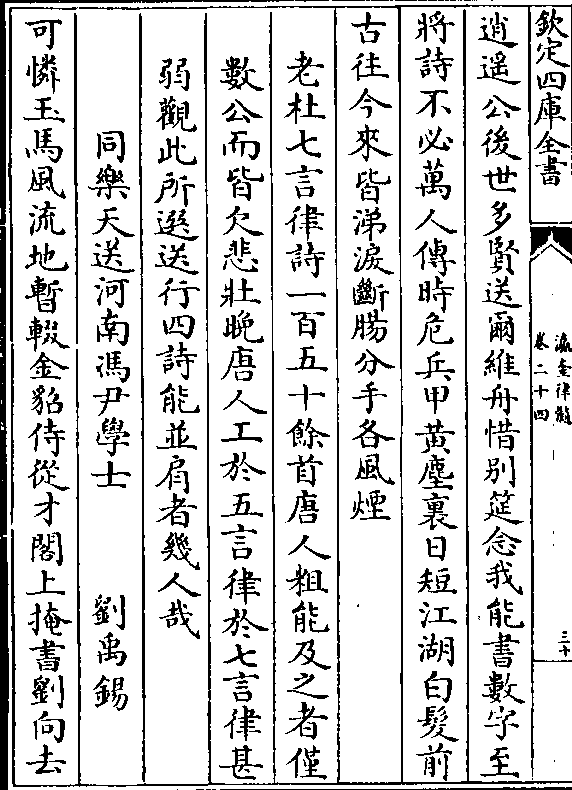 欽定四庫全書
瀛奎律髓
卷二十四
三十
逍遥公後世多賢送爾維舟惜别筵念我能書數字至
將詩不必萬人傳時危兵甲黄塵裏日短江湖白髮前
古往今來皆涕淚斷腸分手各風煙
老杜七言律詩一百五十餘首唐人粗能及之者僅
數公而皆欠悲壯晚唐人工於五言律於七言律甚
弱觀此所選送行四詩能並肩者幾人哉
同樂天送河南馮尹學士 劉禹錫
可憐玉馬風流地暫輟金貂侍從才閣上掩書劉向去